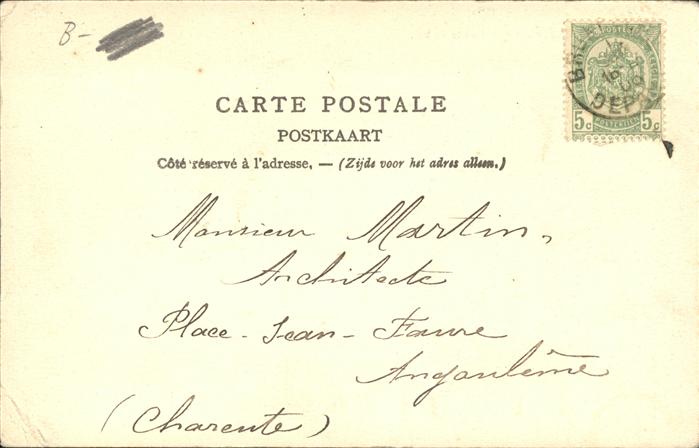 B-
CARTE POSTALE
POSTKAART
Côté réservé à l'adresse. — (Zijde voor het adres alleen.)
POSTES
5c 5c
DEP
Monsieur Martin,
Architecte
Place-Jean-Faure
Angoulême
(Charente)